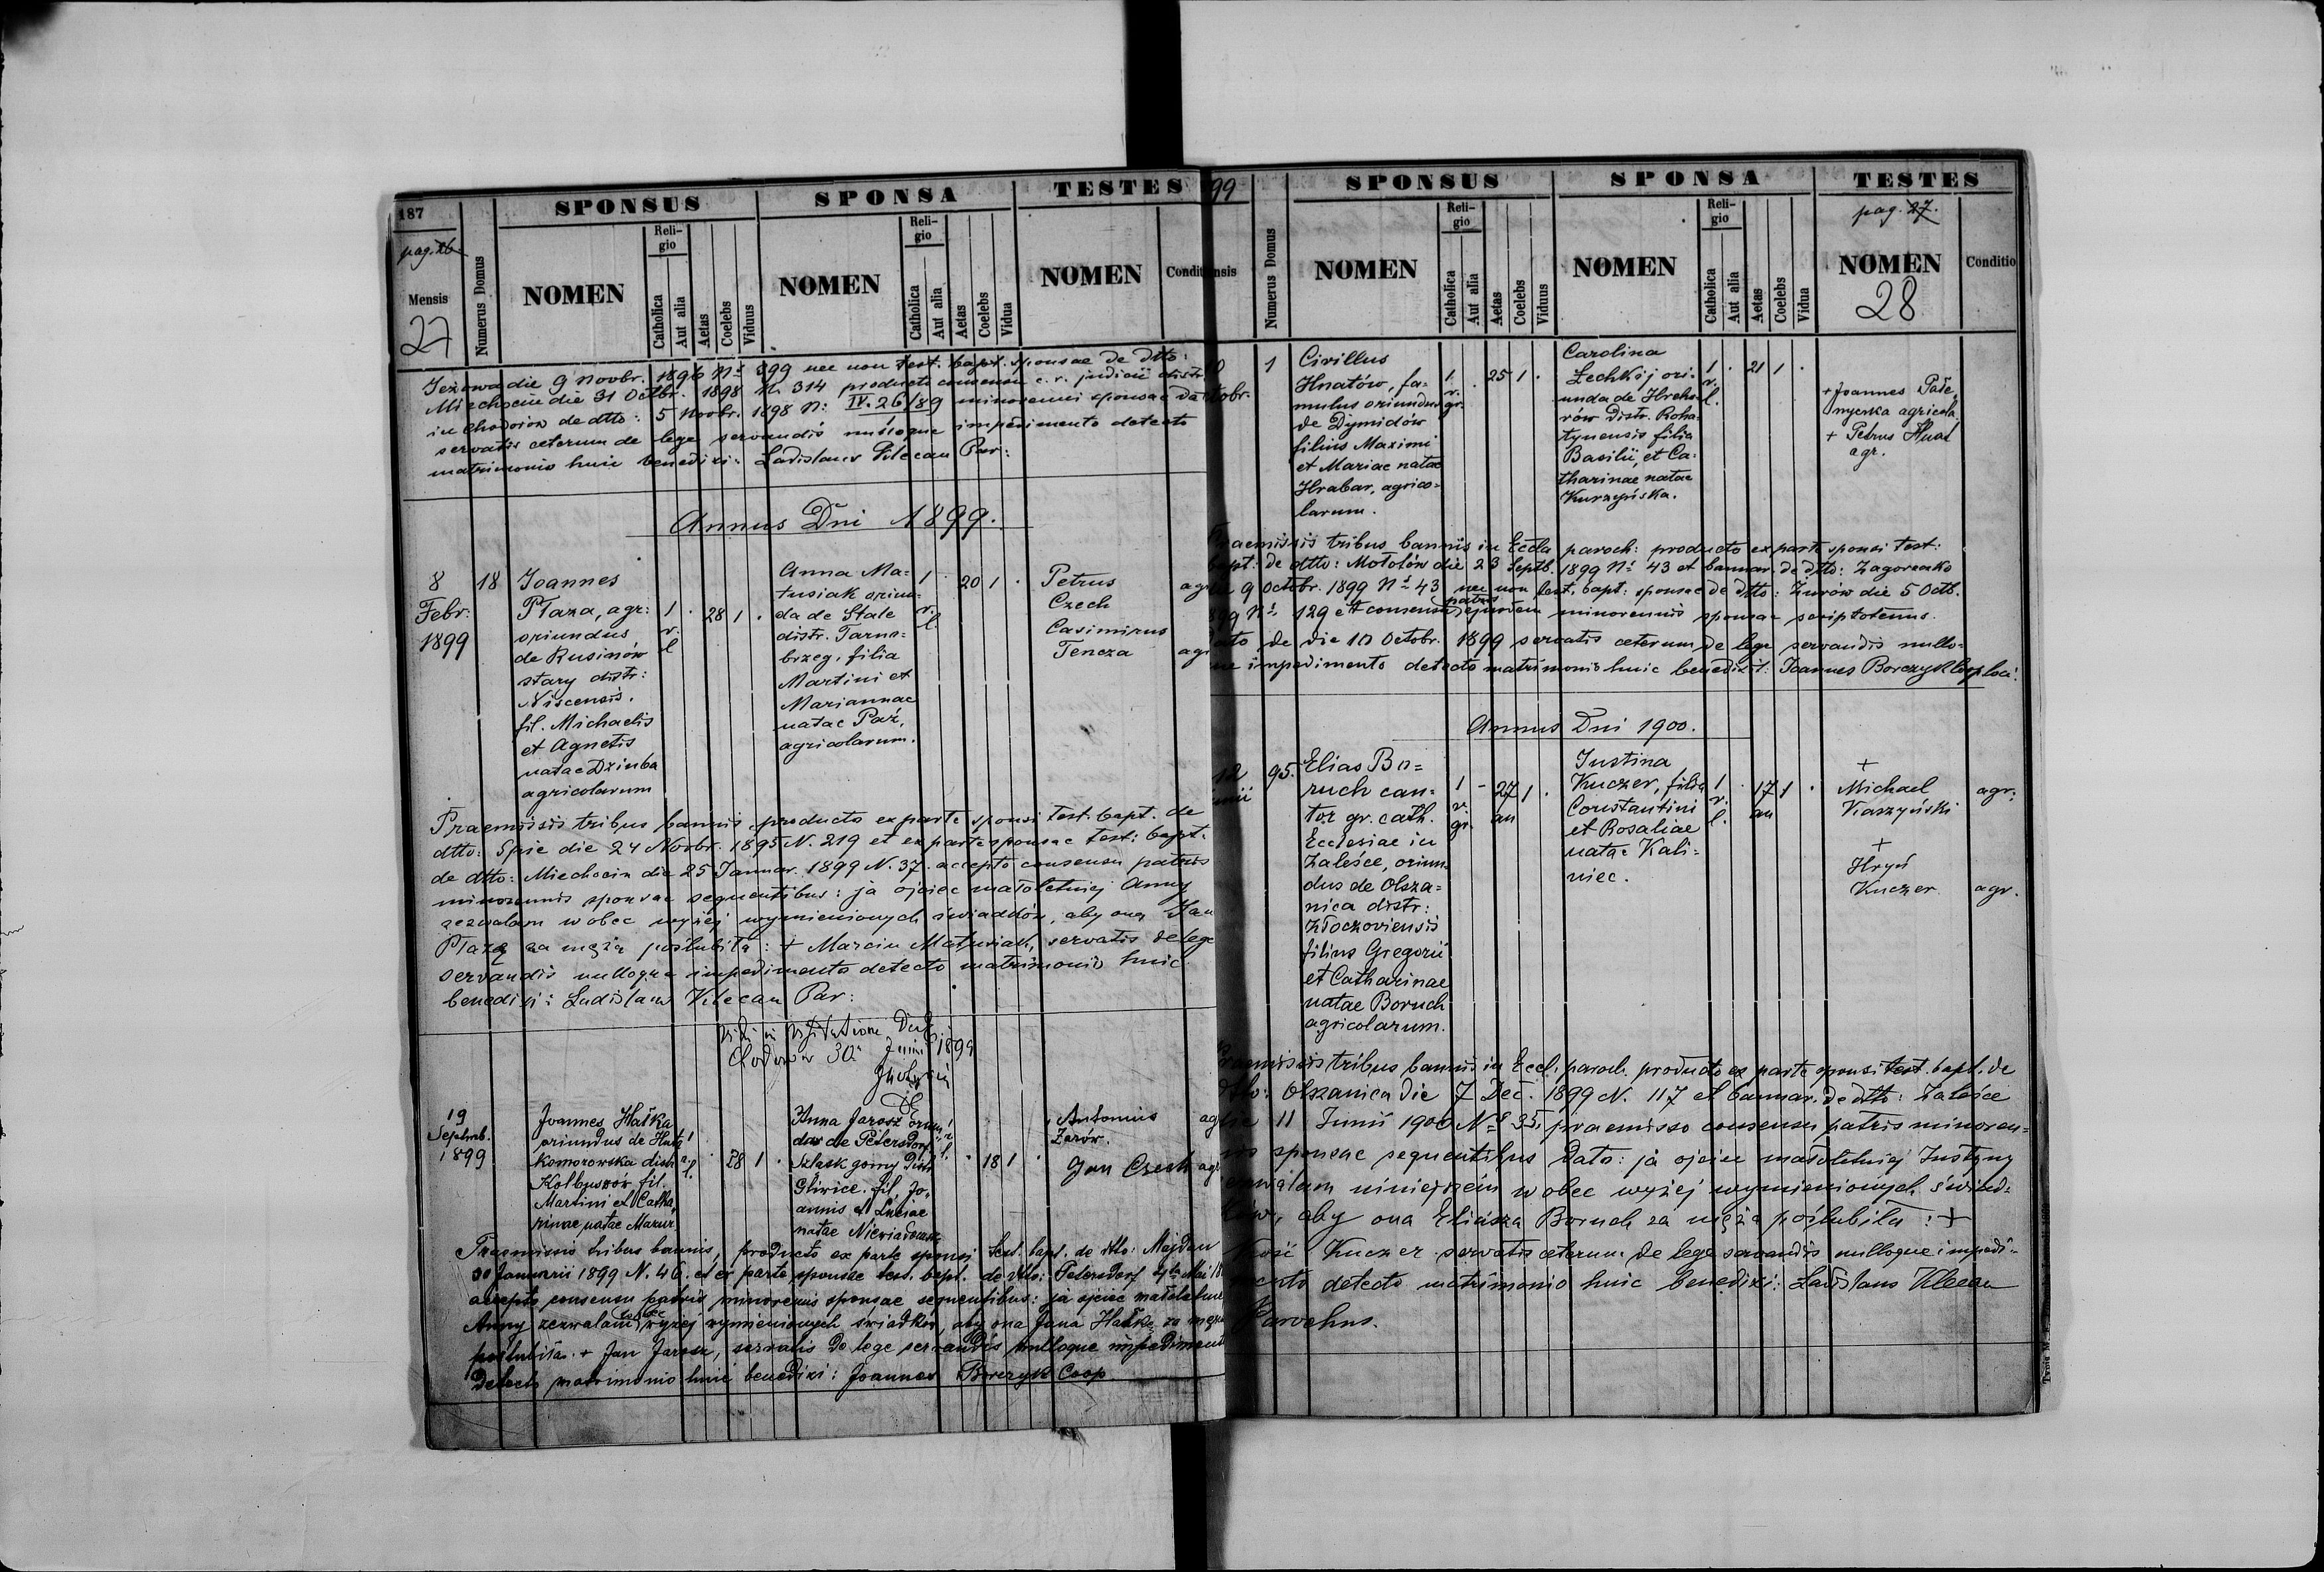 187
pag. 26
Mensis
27
Numerus Domus
SPONSUS
NOMEN
Reli-
gio
Catholica
Aut alia
Aetas
Coelebs
Viduus
SPONSA
NOMEN
Reli-
gio
Catholica
Aut alia
Aetas
Coelebs
Vidua
TESTES
NOMEN
Condit
Jeżowa die 9 Novbr. 1896 Nº 899 nec non test. bapt. sponsae de dtto:
Miechocin die 31 Octbr. 1898 N. 314 producto consensu c. r. judicii distr.
in Chodorow de dtto: 5 Novbr. 1898 N: IV. 26/89 minorenni sponsae dato
servatis ceterum de lege servandis nulloque impedimento detecto
matrimonio huic benedixi: Ladislaus Klecan Par:
Annus Dni 1899.
8
Febr.
1899
18
Joannes
Płaza, agr:
oriundus
de Rusinów
stary distr:
Niscensis.
fil. Michaelis
et Agnetis
natae Dziuba
agricolarum
1
r.
l
28 1 .
Anna Ma=
tusiak oriun=
da de Stale
distr. Tarno=
brzeg, filia
Martini et
Mariannae
natae Paź,
agricolarum.
1
r.
l.
20 1 .
Petrus
Czech
Casimirus
Tencza
agr
agr
Praemissis tribus bannis producto ex parte sponsi test. bapt. de
dtto: Spie die 24 Novbr. 1895 N. 219 et ex parte sponsae test: bapt.
de dtto: Miechocin die 25 Januar. 1899 N. 37. accepto consensu patris
minorennis sponsae sequentibus: ja ojciec małoletniej Anny
zezwalam wobec wyżej wymienionych świadków, aby ona Jan
Płazę za męża poślubiła: + Marcin Matusiak, servatis de lege
servandis nulloque impedimento detecto matrimonio huic
benedixi: Ladislaus Klecan Par:
Chodorów 30 Junii 1899
19
Septmb.
1899
Joannes Hałka
oriundus de Huta
Komorowska distr.
Kolbuszow fil.
Martini et Catha,
rinae natae Mazur
1
r.
l.
28 1 .
Anna Jarosz oriun
da de Petersdorf
Szlask gorny Distr
Gliwice. fil. Jo,
annis et Luciae
natae
1
r.
l.
18 1 .
Antonius
Żarów.
Jan Czech
agr
agr
Praemissis tribus bannis, producto ex parte sponsi test. bapt. de dtto: Majdan
30 Januarii 1899 N. 46. et ex parte sponsae test. bapt. de dtto: Petersdorf 4 Mai 18
accepto consensu patris minorenis sponsae sequentibus: ja ojciec małoletni
Anny zezwalam wobec wyzej wymienionych swiadkow, aby ona Jana Hałkę za męża
poslubiła. + Jan Jarosz, servatis de lege servandis nulloque impediment
detecto matrimonio huic benedixi: Joannes Borczyk Coop
99
nsis
Numerus Domus
SPONSUS
NOMEN
Reli-
gio
Catholica
Aut alia
Aetas
Coelebs
Viduus
SPONSA
NOMEN
Reli-
gio
Catholica
Aut alia
Aetas
Coelebs
Vidua
TESTES
pag. 27.
NOMEN
28
Conditio
10
octobr.
1
Cirillus
Hnatów, fa=
mulus oriundus
de Dymidów
filius Maximi
et Mariae natae
Hrabar, agrico=
larum.
1
r.
gr.
. 25 1 .
Carolina
Lechkij ori=
unda de Hreho
rów Distr. Roha=
tynensis filia
Basilii, et Ca=
tharinae natae
Kurzyńska.
1
r.
l.
. 21 1 .
+ Joannes Pale
nyczka agricola
+ Petrus Hnat
agr.
Praemissis tribus bannis in Eccla paroch: producto ex parte sponsi test:
bapt: de dtto: Mołotów die 23 Septb. 1899 Nº 43 et bannar. de dtto: Zagoreczko
die 9 octobr. 1899 Nº 43 nec non test. bapt: sponsae de dtto: Żurów die 5 Octb.
899 Nº 129 et consensu patris ejusdem minorennis sponsae scriptotenus
dato de die 10 Octobr. 1899 servatis ceterum de lege servandis nullo=
que impedimento detecto matrimonio huic benedixit: Joannes Borczyk Coop loci.
Annus Dni 1900.
12
Junii
95.
Elias Bo=
ruch can=
tor gr. cath.
Ecclesiae in
Zaleśce, oriun
dus de Olsza=
nica distr:
Złoczoviensis
filius Gregorii
et Catharinae
natae Boruch
agricolarum.
1
r.
gr.
-
27
an
1 .
Justina
Kuczer, filia
Constantini
et Rosaliae
natae Kali=
niec.
1
r.
l.
.
17
an
1 .
+
Michael
Kaszyński
agr.
+
Hryń
Kuczer
agr.
Praemissis tribus bannis in Eccl. paroch. producto ex parte sponsi test. bapt. de
dtto: Olszanica die 7 Dec. 1899 N. 117 et bannar. de dtto: Zaleśce
die 11 Junii 1900 Nº 35, praemisso consensu patris minoren=
nis sponsae sequentibus dato: ja ojciec małoletniej Justyny
zezwalam niniejszem wobec wyżej wymienionych świad=
ków, aby ona Eliasza Boruch za męża poślubiła: +
Kość Kuczer servatis ceterum de lege servandis nulloque impedi=
mento detecto matrimonio huic benedixi: Ladislaus Klecan
Parochus.